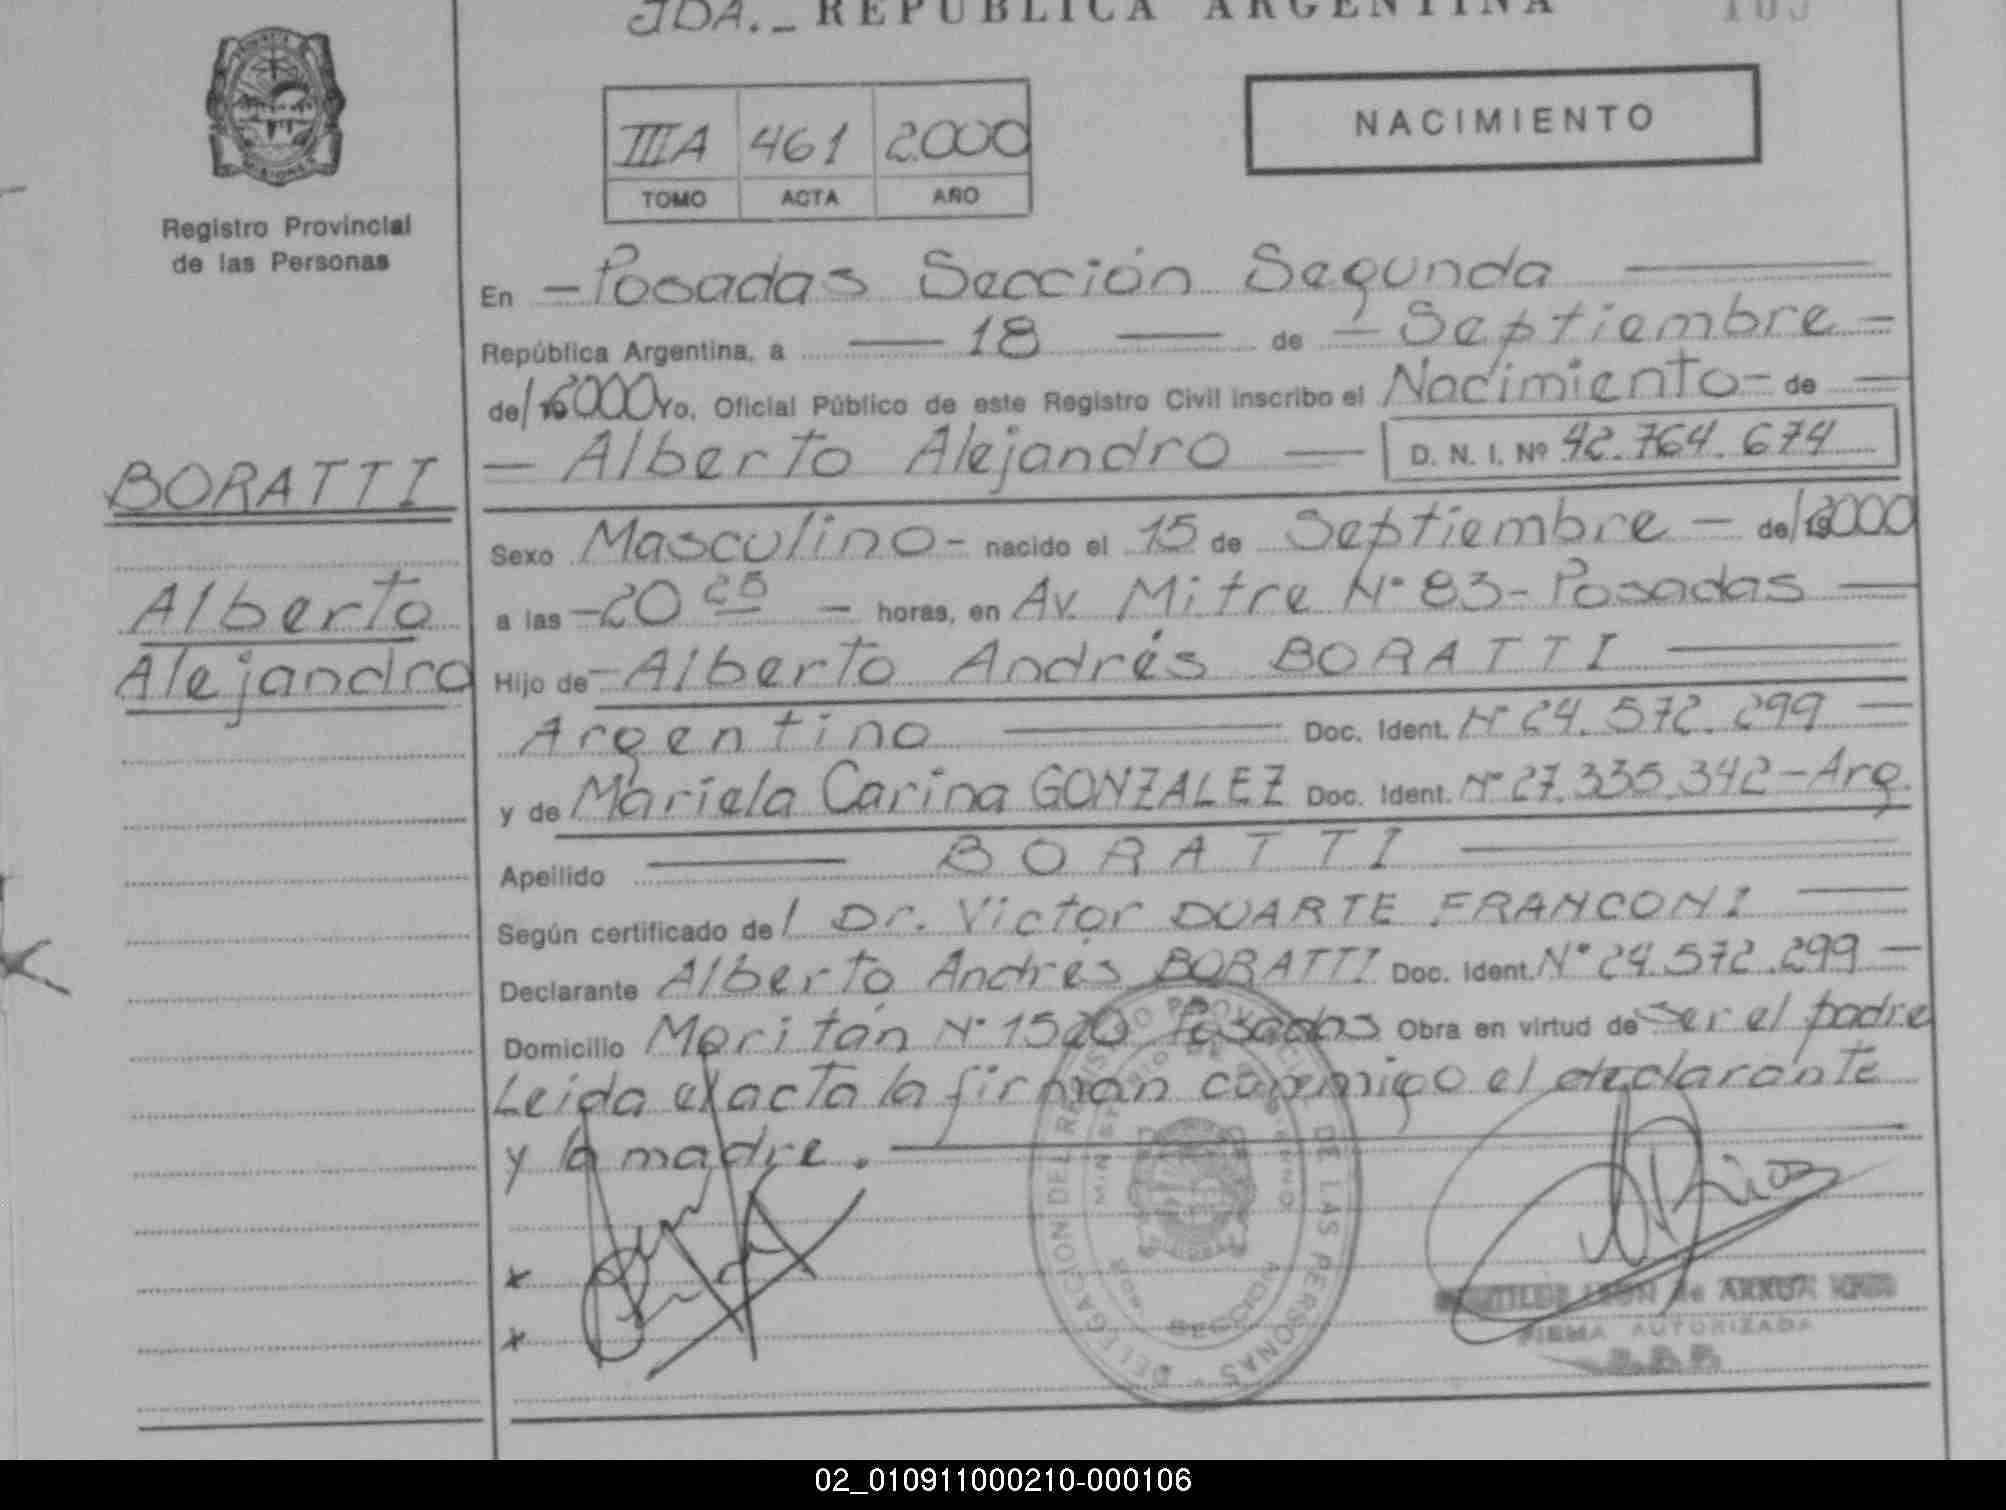 JDA._ REPUBLICA ARGENTINA
Registro Provincial
de las Personas
IIIA 461 2.000
TOMO ACTA AÑO
NACIMIENTO
En - Posadas Sección Segunda
República Argentina, a 18 de - Septiembre -
de/ 2000 Yo, Oficial Público de este Registro Civil inscribo el Nacimiento - de
BORATTI
Alberto
Alejandro
- Alberto Alejandro - D. N. I. Nº 42.764.674
Sexo Masculino - nacido el 15 de Septiembre - de/ 2000
a las - 20 25 - horas, en Av. Mitre Nº 83 - Posadas
Hijo de - Alberto Andrés BORATTI
Argentino Doc. Ident. Nº 24.572.299
y de Mariela Carina GONZALEZ Doc. Ident. Nº 27.335.342 - Arg.
Apellido BORATTI
Según certificado del Dr. Victor DUARTE FRANCONI
Declarante Alberto Andrés BORATTI Doc. Ident. Nº 24.572.299 -
Domicilio Moritán Nº 1520 Posadas Obra en virtud de ser el padre
Leída el acta la firman conmigo el declarante
y la madre.
DELEGACION DEL REGISTRO PROVINCIAL DE LAS PERSONAS
MINISTERIO DE GOBIERNO
SECCION
LEON de ARRUA
FIRMA AUTORIZADA
02_010911000210-000106